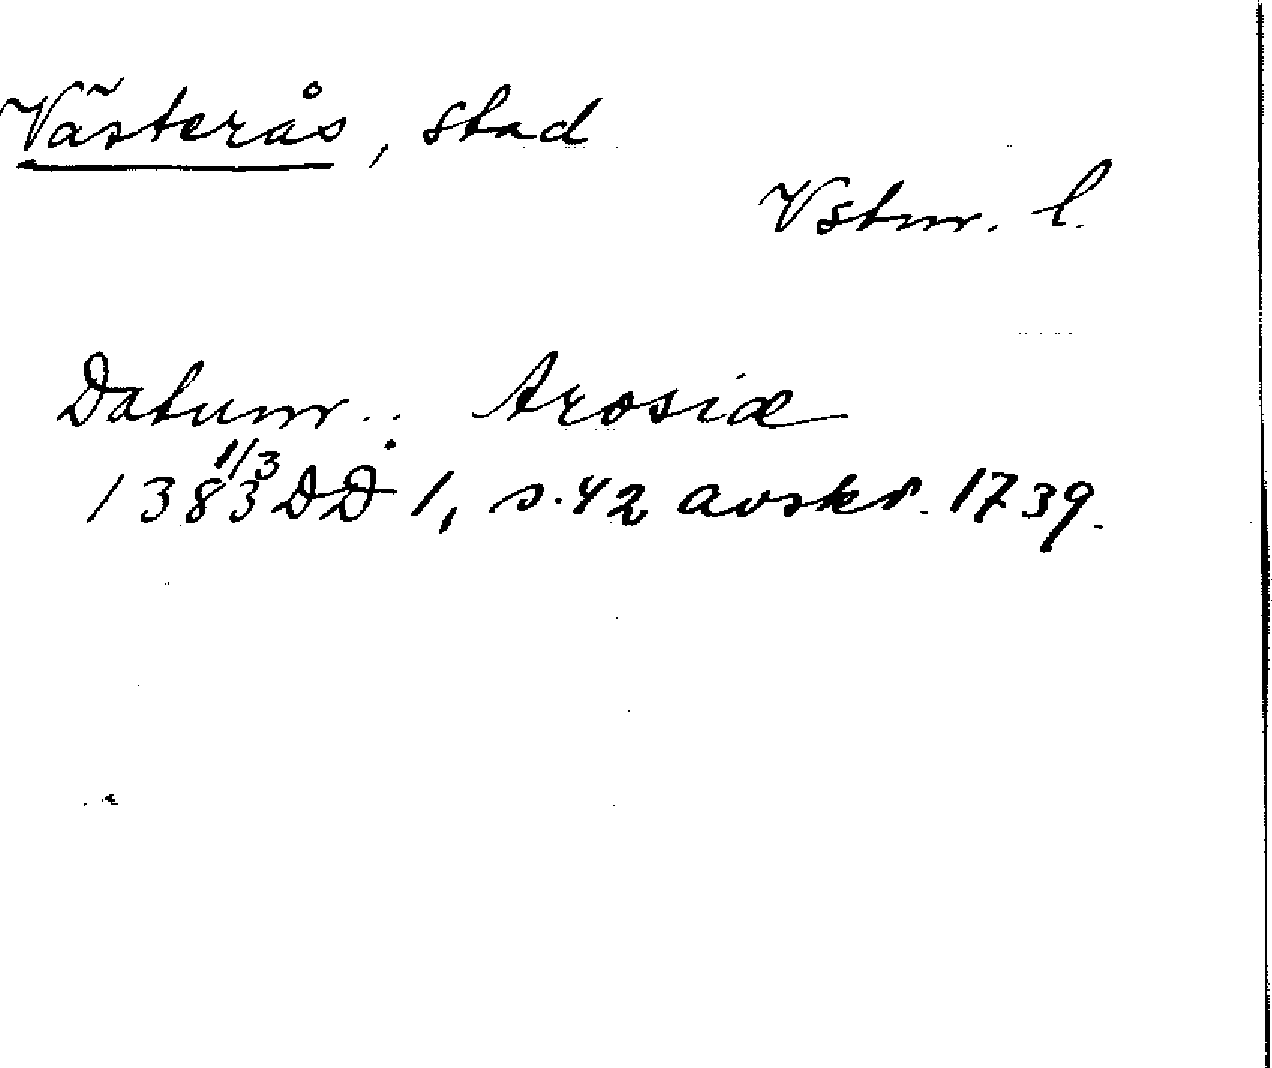 Västerås, stad
Vstm. l.
Datum: Arosiæ
1383 1/3 DD 1, s. 42 avskr. 1739.